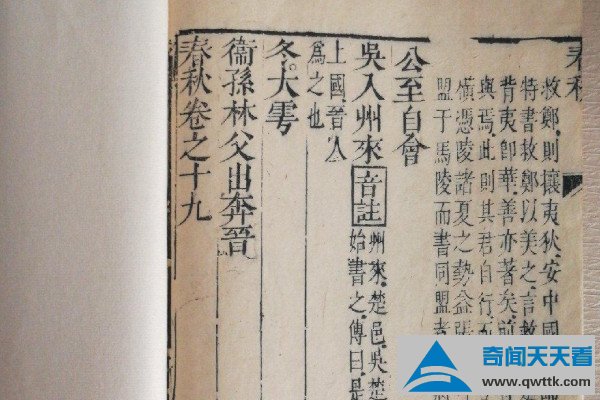 春秋
救鄭則攘夷狄安中國
特書救鄭以美之言救
背夷卽華善亦著矣前
與焉此則其君自行
憑陵諸夏之勢益張
盟于馬陵而書同盟者
公至自會
吳入州來 音註 州來楚邑吳楚
始書之傳曰是
上國晉人
為之也
冬大雩
衞孫林父出奔晉
春秋卷之十九
奇闻天天看
www.qwttk.com